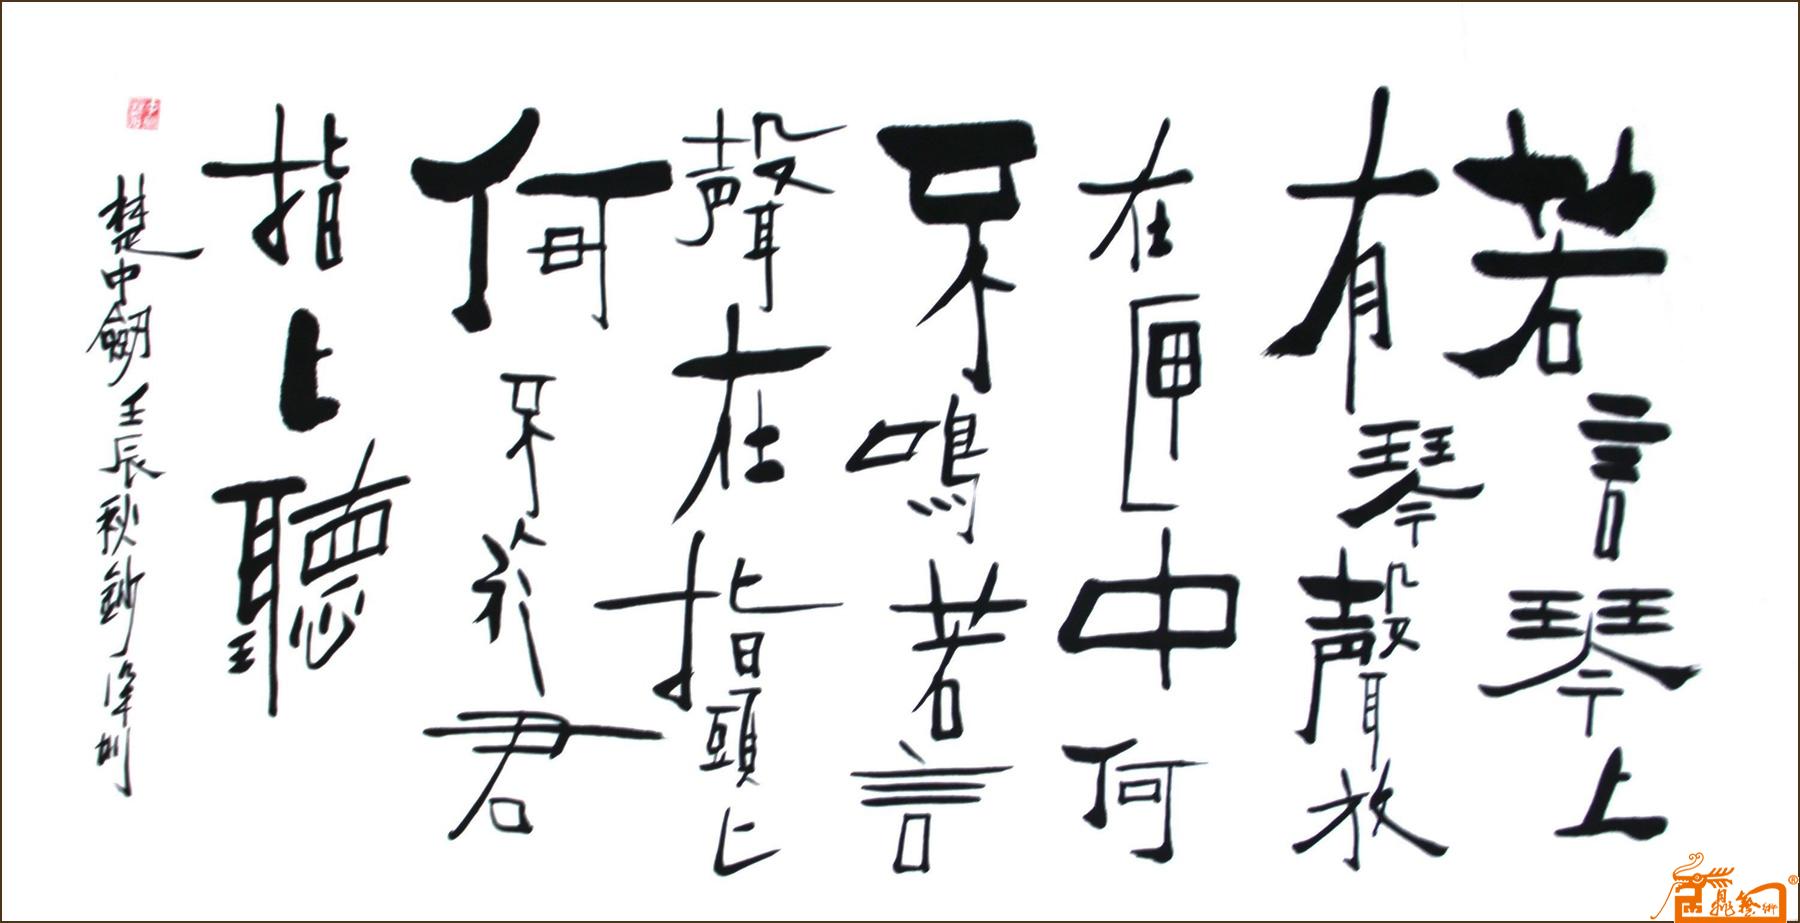 若言琴上
有琴聲放
在匣中何
不鳴若言
聲在指頭上
何不於君
指上聽
楚中劔壬辰秋鈔深圳